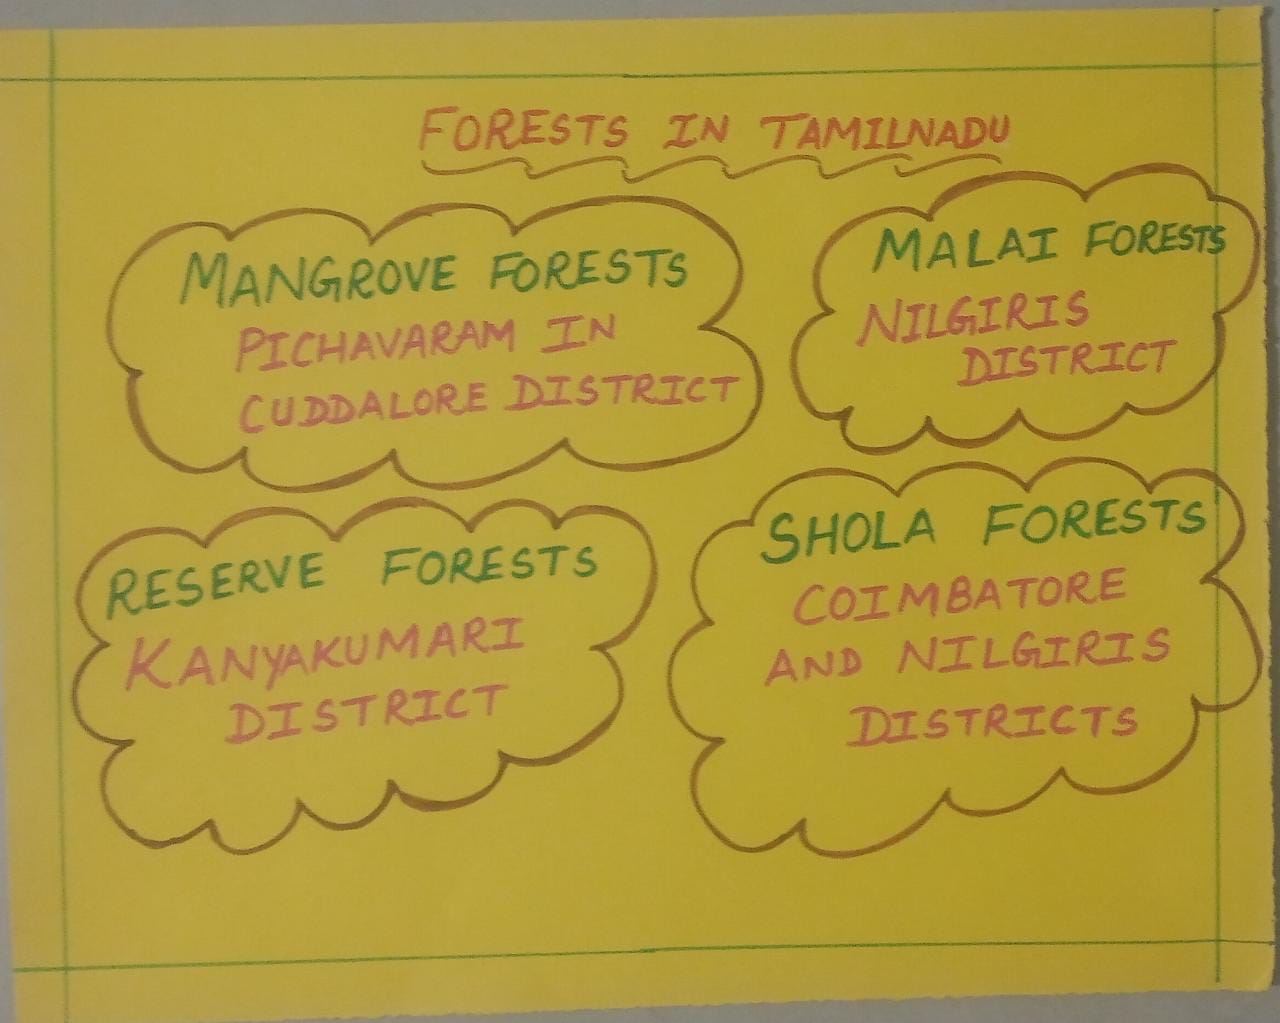 FORESTS IN TAMILNADU
MANGROVE FORESTS
PICHAVARAM IN
CUDDALORE DISTRICT
MALAI FORESTS
NILGIRIS
DISTRICT
RESERVE FORESTS
KANYAKUMARI
DISTRICT
SHOLA FORESTS
COIMBATORE
AND NILGIRIS
DISTRICTS